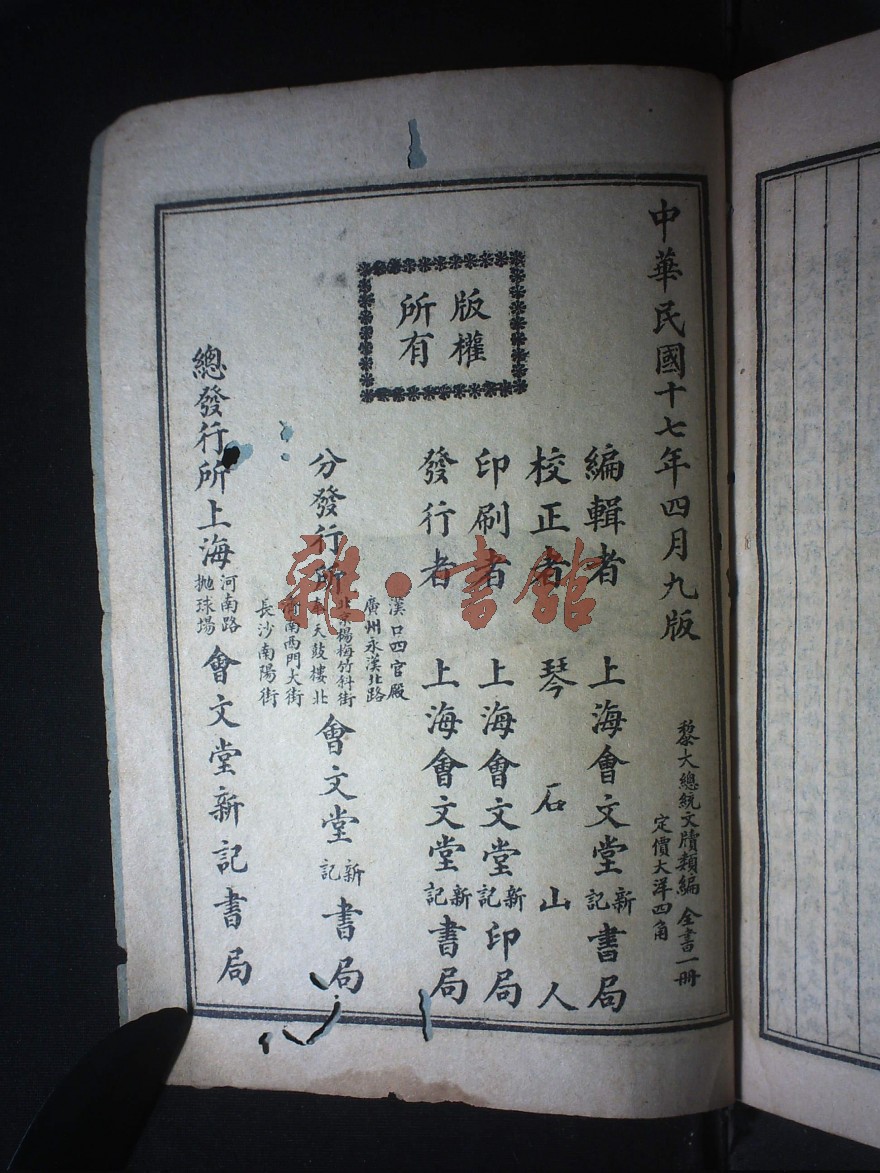 中華民國十七年四月九版
黎大總統文牘類編 全書一冊
定價大洋四角
版權
所有
編輯者 上海會文堂新記書局
校正者 琴石山人
印刷者 上海會文堂新記印局
發行者 上海會文堂新記書局
分發行所
漢口四官殿
廣州永漢北路
北京楊梅竹斜街
奉天鼓樓北
河南西門大街
長沙南陽街
會文堂新記書局
總發行所上海河南路拋球場會文堂新記書局
雜·書館